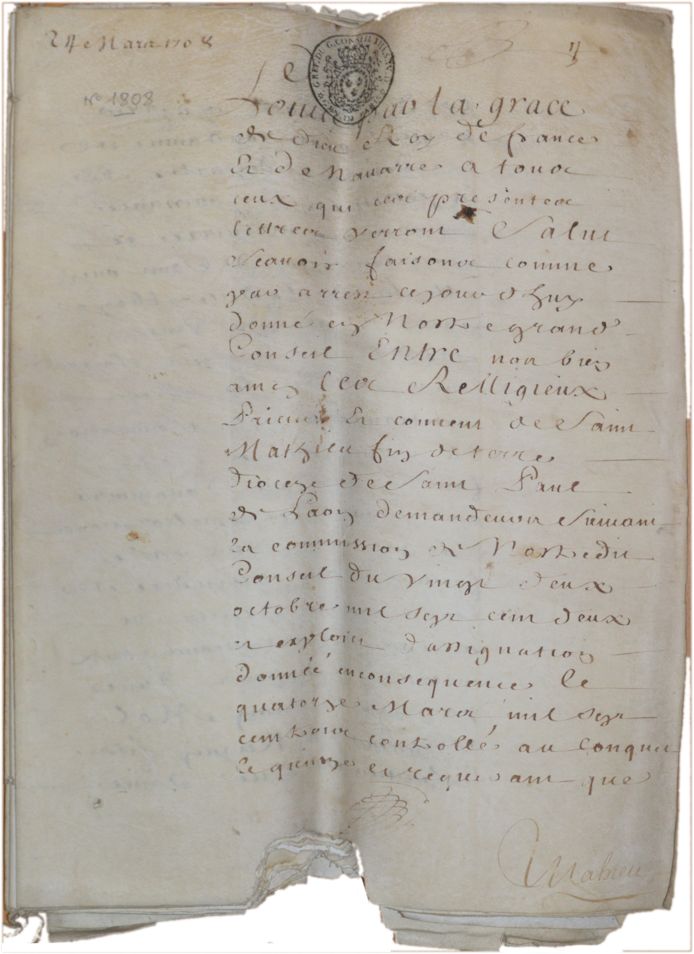 24e Mars 1708
4
n° 1808
Louis par la grace
de dieu Roy de france
Et de Navarre a tous
ceux qui ces presentes
lettres verront Salut
Scavoir faisons comme
par arrest cejourdhuy
donné en Nostre grand
Conseil Entre nos bien
amez les Religieux
Prieur Et couvent de Saint
Mathieu fin de terre
dioceze de Saint Paul
de Laon demandeurs Suivant
la commission de Nostredit
Conseil du vingt deux
octobre mil sept cent deux
et exploit d'assignation
donnée enconsequence le
quatorze Mars mil sept
cent trois controllé au Conquet
le quinze et requerant que